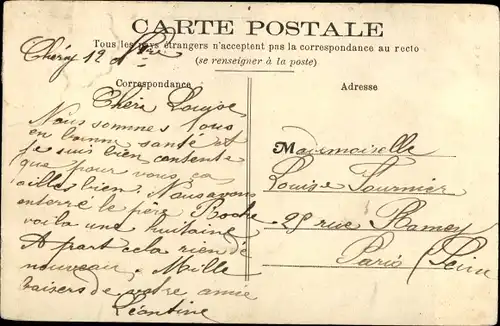 CARTE POSTALE
Tous les pays étrangers n'acceptent pas la correspondance au recto
(se renseigner à la poste)
Chéry 12
Correspondance
Adresse
Chère Louise
Nous sommes tous
en bonne santé et
je suis bien contente
que pour vous ça
aille bien. Nous avons
enterré le père Roche
voila une huitaine
A part cela rien de
nouveau. Mille
baisers de votre amie
Léontine
Mademoiselle
Louise Fournier
25 rue Ramey
Paris (Seine